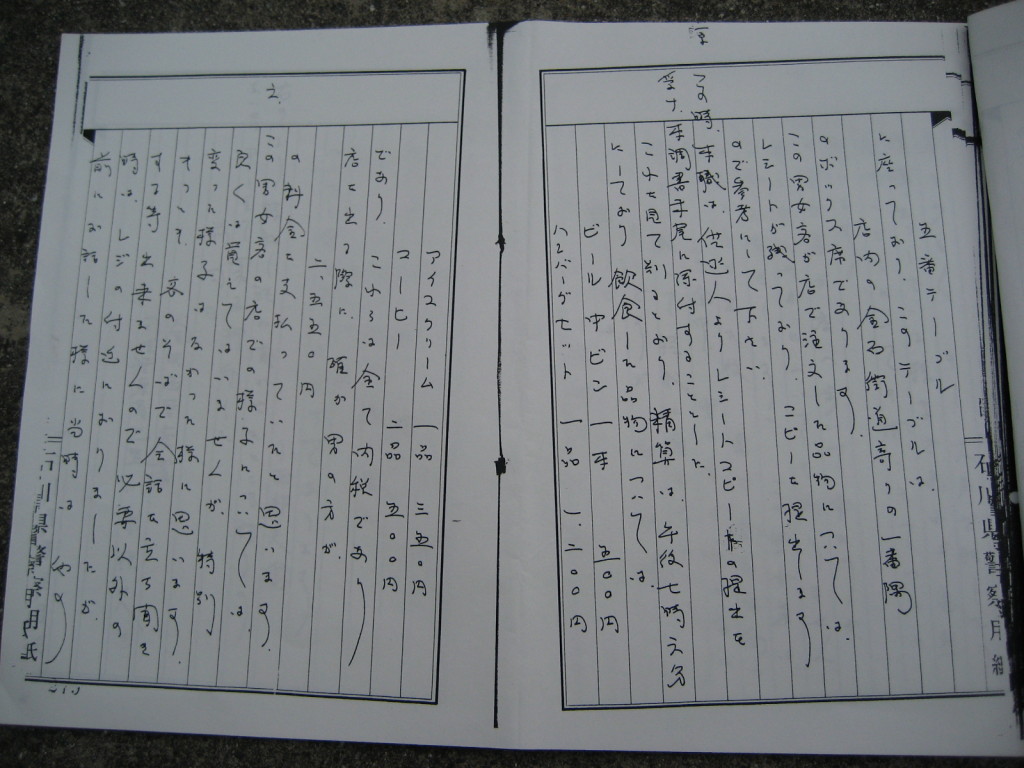 五番テーブル
に座っており、このテーブルは、
店内の金石街道寄りの一番隅
のボックス席であります。
この男女客が店で注文した品物については、
レシートが残っており、コピーを提出します
ので参考にして下さい。
この時、本職は、供述人よりレシートコピー一枚の提出を
受け、本調書末尾に添付することとした。
これを見て判るとおり、精算は、午後七時六分
にしており、飲食した品物については、
ビール中ビン 一本 五〇〇円
ハンバーグセット 一品 一、二〇〇円
石川県警察用紙
アイスクリーム 一品 三五〇円
コーヒー 二品 五〇〇円
であり、これらは全て内税であり
店を出る際に、確か男の方が、
二五五〇円
の料金を支払っていたと思います。
この男女客の店での様子については、
良くは覚えてはいませんが、特別
変った様子はなかった様に思います。
そして、客のそばで会話を立ち聞き
する等出来ませんので必要以外の
時は、レジの付近におりましたが、
前にお話した様に当時は
石川県警察用紙